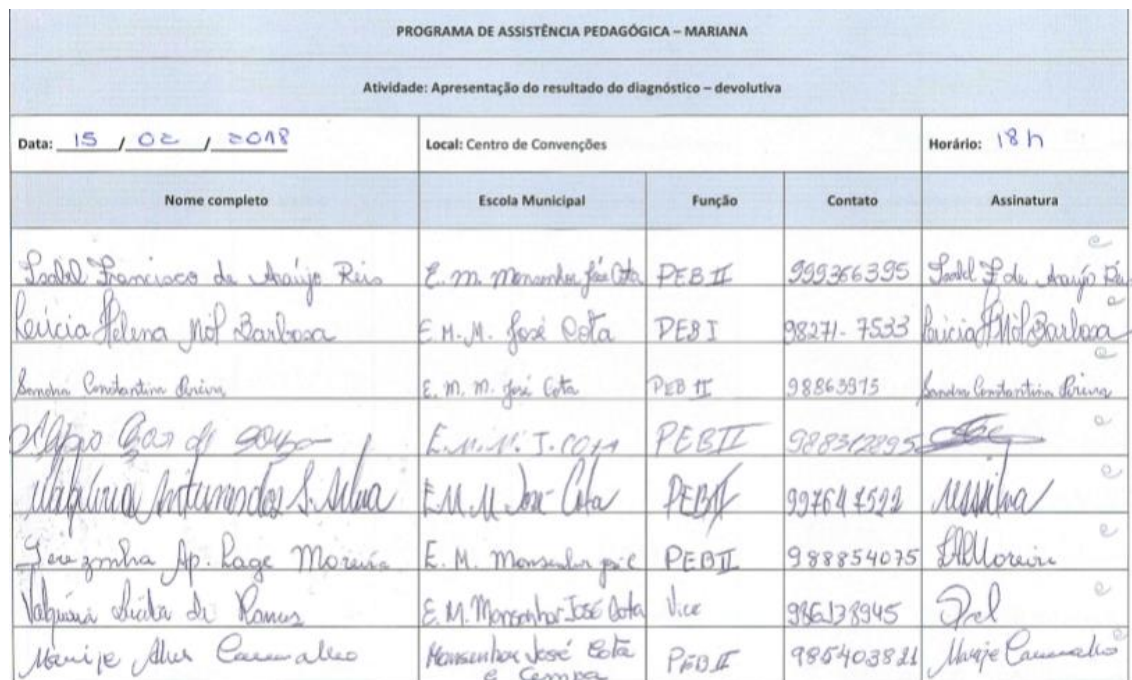 PROGRAMA DE ASSISTÊNCIA PEDAGÓGICA – MARIANA
Atividade: Apresentação do resultado do diagnóstico – devolutiva
Data: 15 / 02 / 2018 Local: Centro de Convenções Horário: 18 h
Nome completo Escola Municipal Função Contato Assinatura
Isabel Francisca de Araújo Reis E. M. Monsenhor José Cota PEB II 999366395 Isabel F de Araújo Reis
Lúcia Helena Mól Barbosa E. M. M. José Cota PEB I 98271-7533 Lúcia H Mól Barbosa
Sandra Constantina Pereira E. M. M. José Cota PEB II 98863975 Sandra Constantina Pereira
de Souza E.M.M. J. COTA PEB II 988312895
Antunes dos S. Silva E M M José Cota PEB II
Terezinha Ap. Lage Moreira E. M. Monsenhor José PEB II 988854075 Moreira
de Ramos E. M. Monsenhor José Cota Vice 986138945
Alves Carvalho Monsenhor José Cota PEB II 985403821 Carvalho
e Cempa